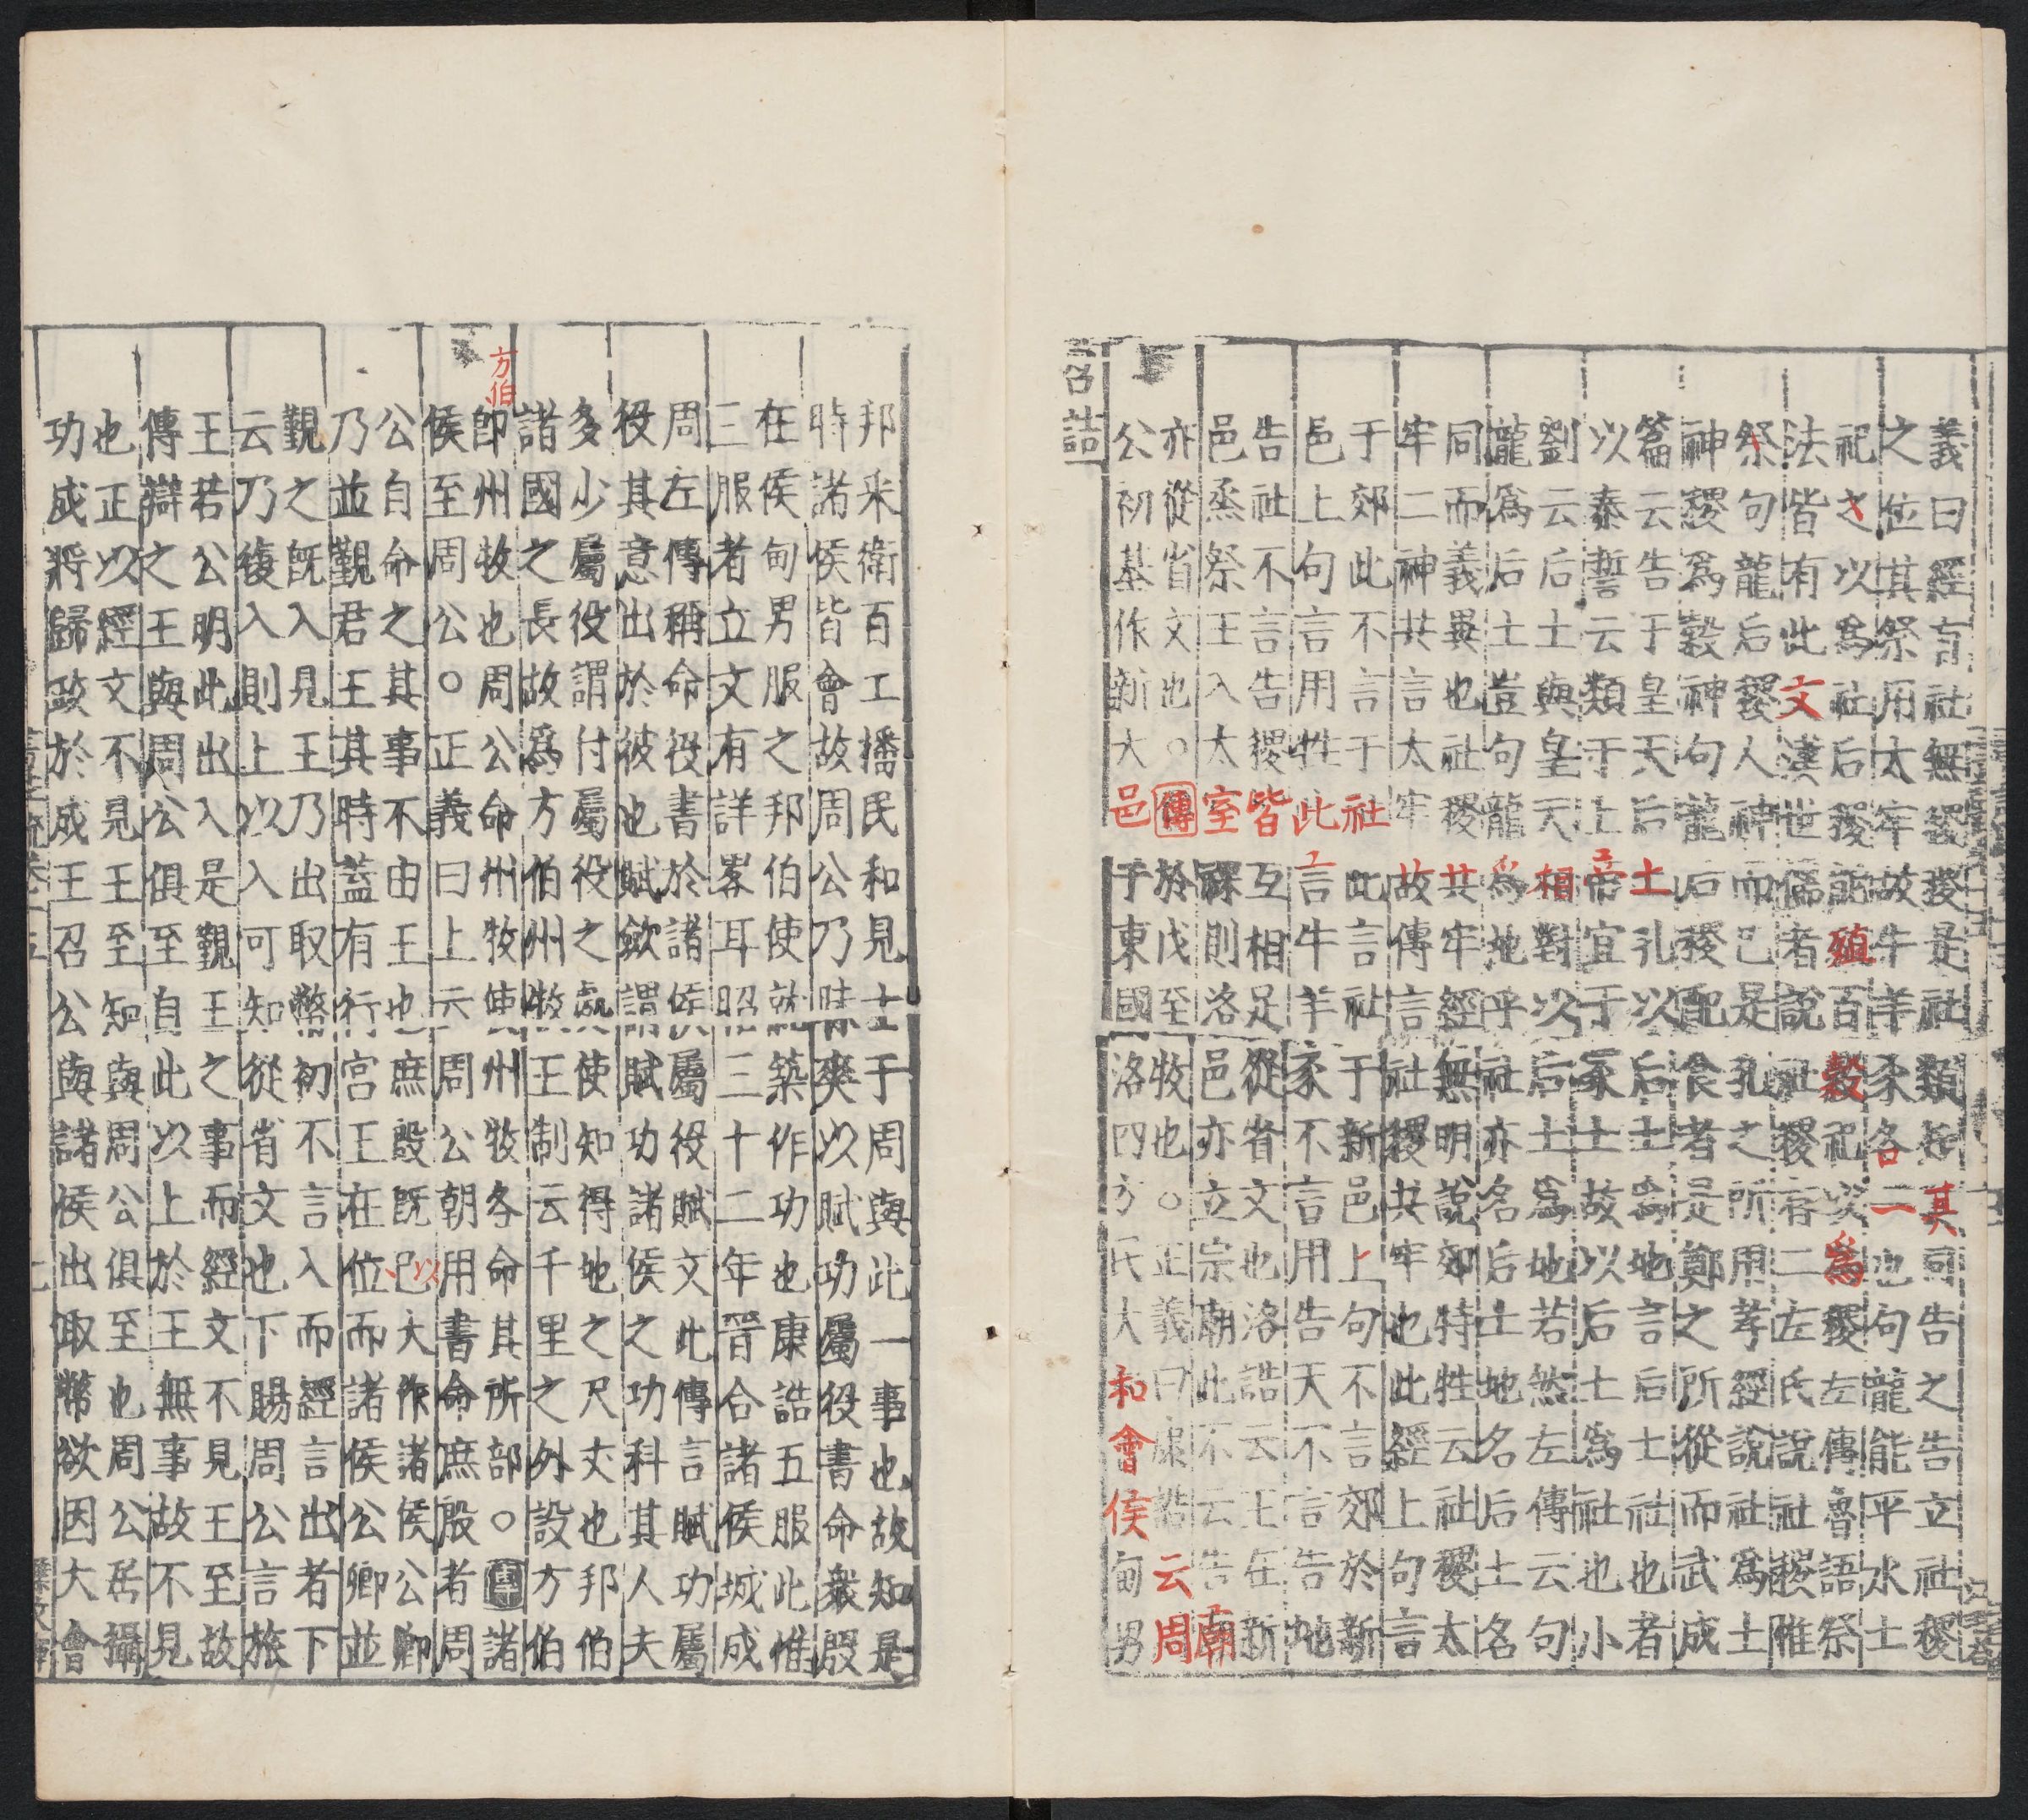 召誥
義曰經有社無稷稷是社類知其同告之告立社稷
之位其祭用太牢故牛羊豕各一也句龍能平水土
祀之以爲社后稷能殖百穀祀以爲稷左傳魯語祭
法皆有此文漢世儒者說社稷有二左氏說社稷惟
祭句龍后稷人神而已是孔之所用孝經說社爲土
神稷爲穀神句龍后稷配食者是鄭之所從而武成
篇云告于皇天后土孔以后土爲地言后土社也者
以泰誓云類于上帝宜于冢土故以后土爲社也小
劉云后土與皇天相對以后土爲地若然左傳云句
龍爲后土豈句龍爲地乎社亦名后土地名后土名
同而義異也社稷共牢經無明說郊特牲云社稷太
牢二神共言太牢故傳言社稷共牢也此經上句言
于郊此不言于社此言社于新邑上句不言郊於新
邑上句言用牲此言牛羊豕不言用告天不言告地
告社不言告稷皆互相足從省文也洛誥云王在新
邑烝祭王入太室祼則洛邑亦立宗廟此不云告廟
亦從省文也○傳於戊至牧也○正義曰康誥云周
公初基作新大邑于東國洛四方民大和會侯甸男
邦采衛百工播民和見士于周與此一事也故知是
時諸侯皆會故周公乃昧爽以賦功屬役書命衆殷
在侯甸男服之邦伯使就築作功也康誥五服此惟
三服者立文有詳畧耳昭三十二年晉合諸侯城成
周左傳稱命役書於諸侯屬役賦文此傳言賦功屬
役其意出於彼也賦斂謂賦功諸侯之功科其人夫
多少屬役謂付屬役之處使知得地之尺丈也邦伯
諸國之長故爲方伯州牧王制云千里之外設方伯
方伯
即州牧也周公命州牧使州牧各命其所部○傳諸
侯至周公○正義曰上云周公朝用書命庶殷者周
公自命之其事不由王也庶殷既已大作諸侯公卿
以
乃並覲君王其時蓋有行宮王在位而諸侯公卿並
覲之既入見王乃出取幣初不言入而經言出者下
云乃復入則上以入可知從省文也下賜周公言旅
王若公明此出入是覲王之事而經文不見王至故
傳辯之王與周公俱至自此以上於王無事故不見
也正以經文不見王至知與周公俱至也周公居攝
功成將歸政於成王召公與諸侯出取幣欲因大會